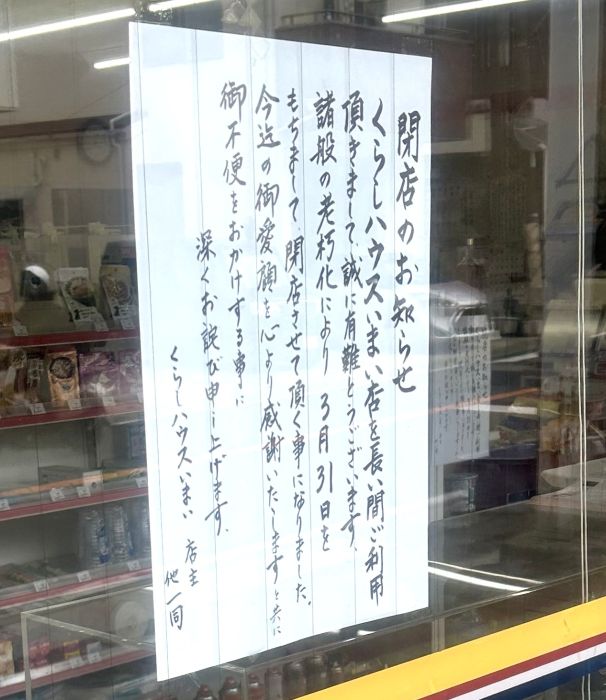 閉店のお知らせ
くらしハウスいまい店を長い間ご利用
頂きまして、誠に有難とうございます。
諸般の老朽化により 3月31日を
もちまして、閉店させて頂く事になりました。
今迄の御愛顔を心より感謝いたしますと共に
御不便をおかけする事に
深くお詫び申し上げます。
くらしハウスいまい 店主
他一同